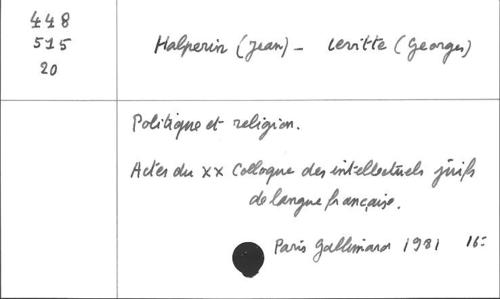 448
515
20
Halperin (Jean) - Levitte (Georges)
Politique et religion.
Actes du XX Colloque des intellectuels juifs
de langue française.
Paris Gallimard 1981 16-